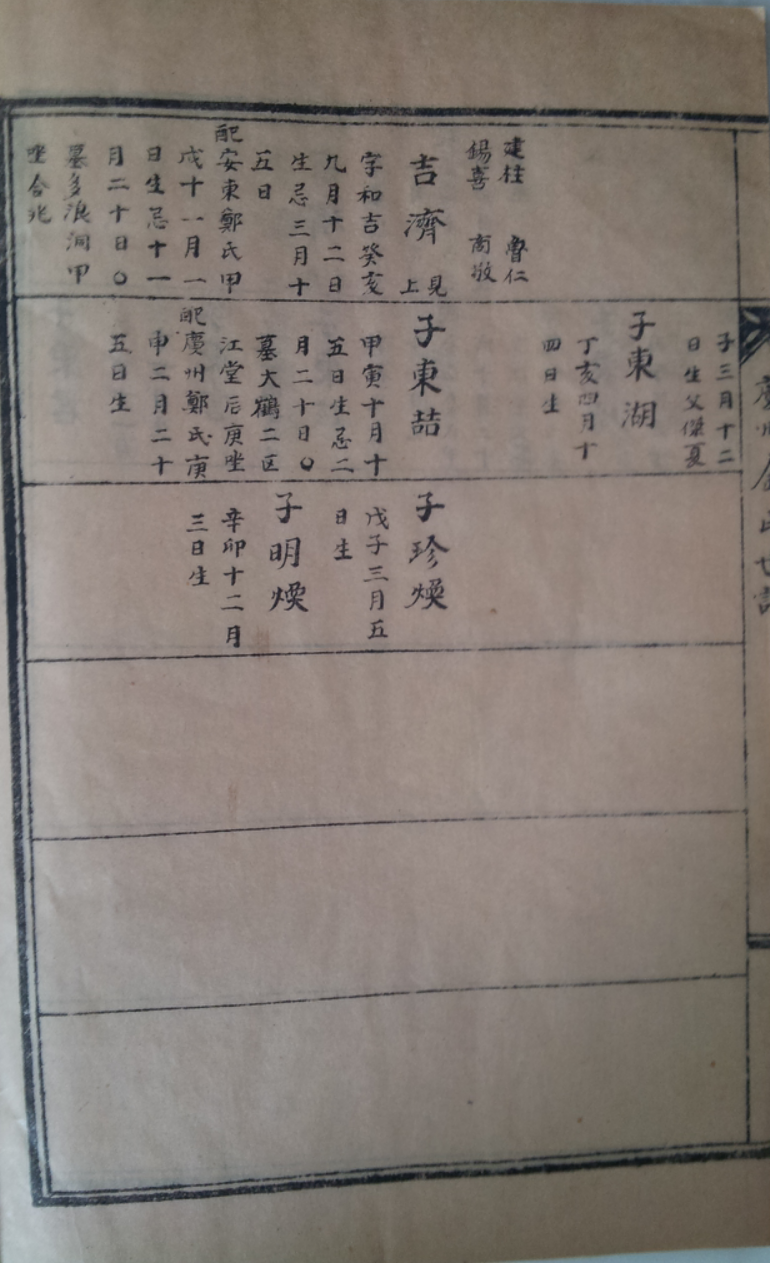 建柱 魯仁
錫喜 商敬
吉濟 見上
字和吉癸亥
九月十二日
生忌三月十
五日
配安東鄭氏甲
戊十一月一
日生忌十一
月二十日〇
墓多浪洞甲
坐合兆
子三月十二
日生父傑夏
子東湖
丁亥四月十
四日生
子東喆
甲寅十月十
五日生忌二
月二十日〇
墓大鶴二区
江堂后庚坐
配慶州鄭氏庚
申二月二十
五日生
子珍煥
戊子三月五
日生
子明煥
辛卯十二月
三日生
慶州金氏世譜